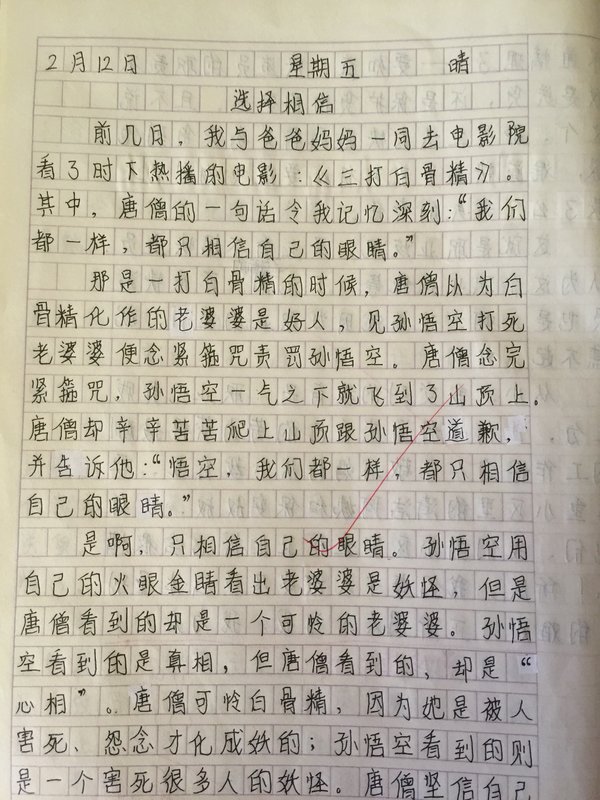 2月12日 星期五 晴
选择相信
前几日，我与爸爸妈妈一同去电影院
看了时下热播的电影：《三打白骨精》。
其中，唐僧的一句话令我记忆深刻：“我们
都一样，都只相信自己的眼睛。”
那是一打白骨精的时候，唐僧以为白
骨精化作的老婆婆是好人，见孙悟空打死
老婆婆便念紧箍咒责罚孙悟空。唐僧念完
紧箍咒，孙悟空一气之下就飞到了山顶上。
唐僧却辛辛苦苦爬上山顶跟孙悟空道歉，
并告诉他：“悟空，我们都一样，都只相信
自己的眼睛。”
是啊，只相信自己的眼睛。孙悟空用
自己的火眼金睛看出老婆婆是妖怪，但是
唐僧看到的却是一个可怜的老婆婆。孙悟
空看到的是真相，但唐僧看到的，却是“
心相”。唐僧可怜白骨精，因为她是被人
害死、怨念才化成妖的；孙悟空看到的则
是一个害死很多人的妖怪。唐僧坚信自己